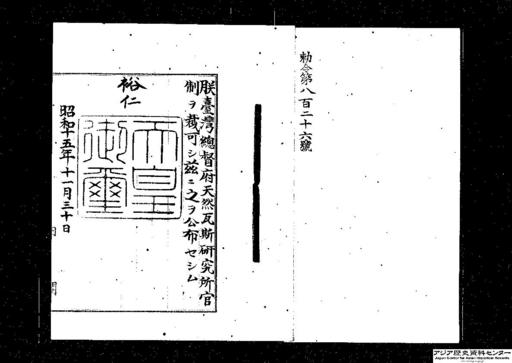 勅令第八百二十六號
朕臺灣總督府天然瓦斯研究所官
制ヲ裁可シ茲ニ之ヲ公布セシム
裕仁
天皇
御璽
昭和十五年十一月三十日
アジア歴史資料センター
Japan Center for Asian Historical Records